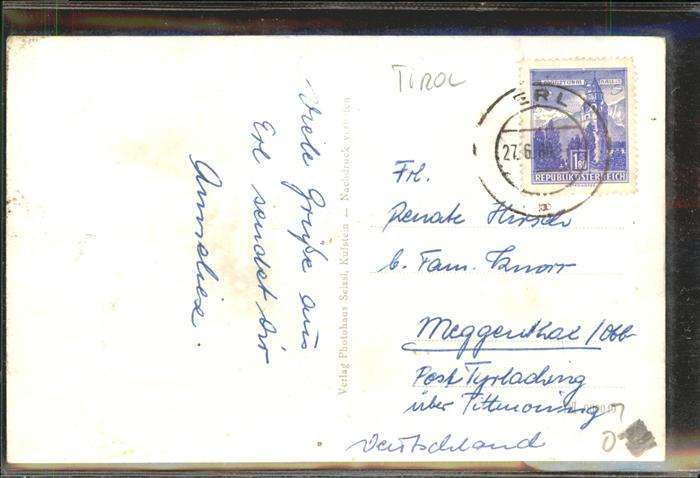 TIROL
Viele Grüße aus
Erl sendet Dir
Anneliese
Verlag Photohaus Seissl, Kufstein — Nachdruck verboten
ERL
27.6.
1.80
REPUBLIK ÖSTERREICH
Frl.
Renate Hirsch
b. Fam. Knorr
Meggenthal/Obb
Post Tyrlaching
über Tittmoning
Deutschland